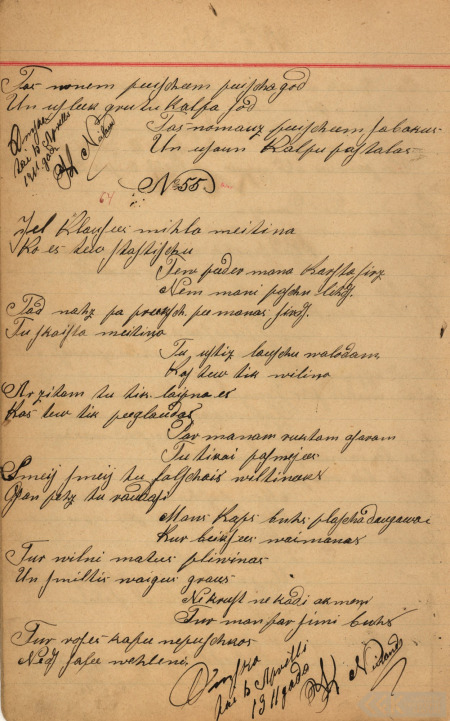 Tas nonem puischam puischagod
Un usleek grutu Kalpa god
Tas nomauz puischam sabakus
Un usaun Kalpu pastalas
Omska
tai 13 Aprilli
1911 gada
Nº 55
64
Jel Klausees mihla meitina
Ko es tew stastischu
Tew pader mana Karsta sirz
Nem mani paschu lihds.
Tad nahz pa preeksch. pee manas sirds.
Tu skaista meitina
Tu ustiz lauschu walodam
Kas tew tik wilina
Ar zitam tu tik laipna es
Kas tew tik peeglaudas
Par manam ruktam asaram
Tu tikai pasmejees
Smeij smeij tu falschais wiltineeks
Gan pehz tu raudasi
Mans Kaps buhs plascha daugawai
Kur beigsees waimanas
Tur wilni matus pliwinas
Un smiltis waigus graus
Ne krust ne kadi akmeni
Tur man par simi buhs
Tur roses kapu nepuschkos
Nedz salee wehleni
Omska
tai 13 Aprilli
1911 gada